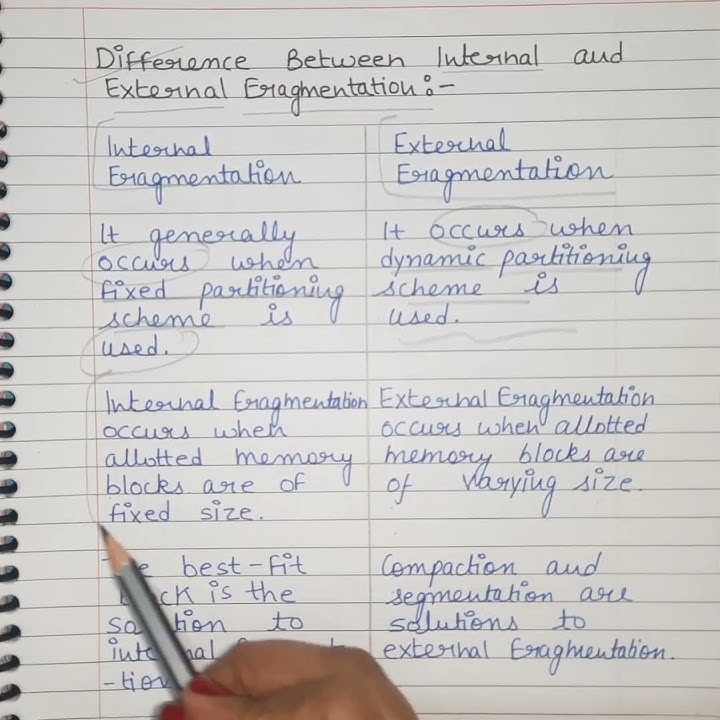 Difference Between Internal and
External Fragmentation :-
Internal
Fragmentation
External
Fragmentation
It generally
occurs when
fixed partitioning
scheme is
used.
It occurs when
dynamic partitioning
scheme is
used.
Internal Fragmentation
occurs when
allotted memory
blocks are of
fixed size.
External Fragmentation
occurs when allotted
memory blocks are
of varying size.
best-fit
is the
solution to
internal
-tion
Compaction and
segmentation are
solutions to
external Fragmentation.